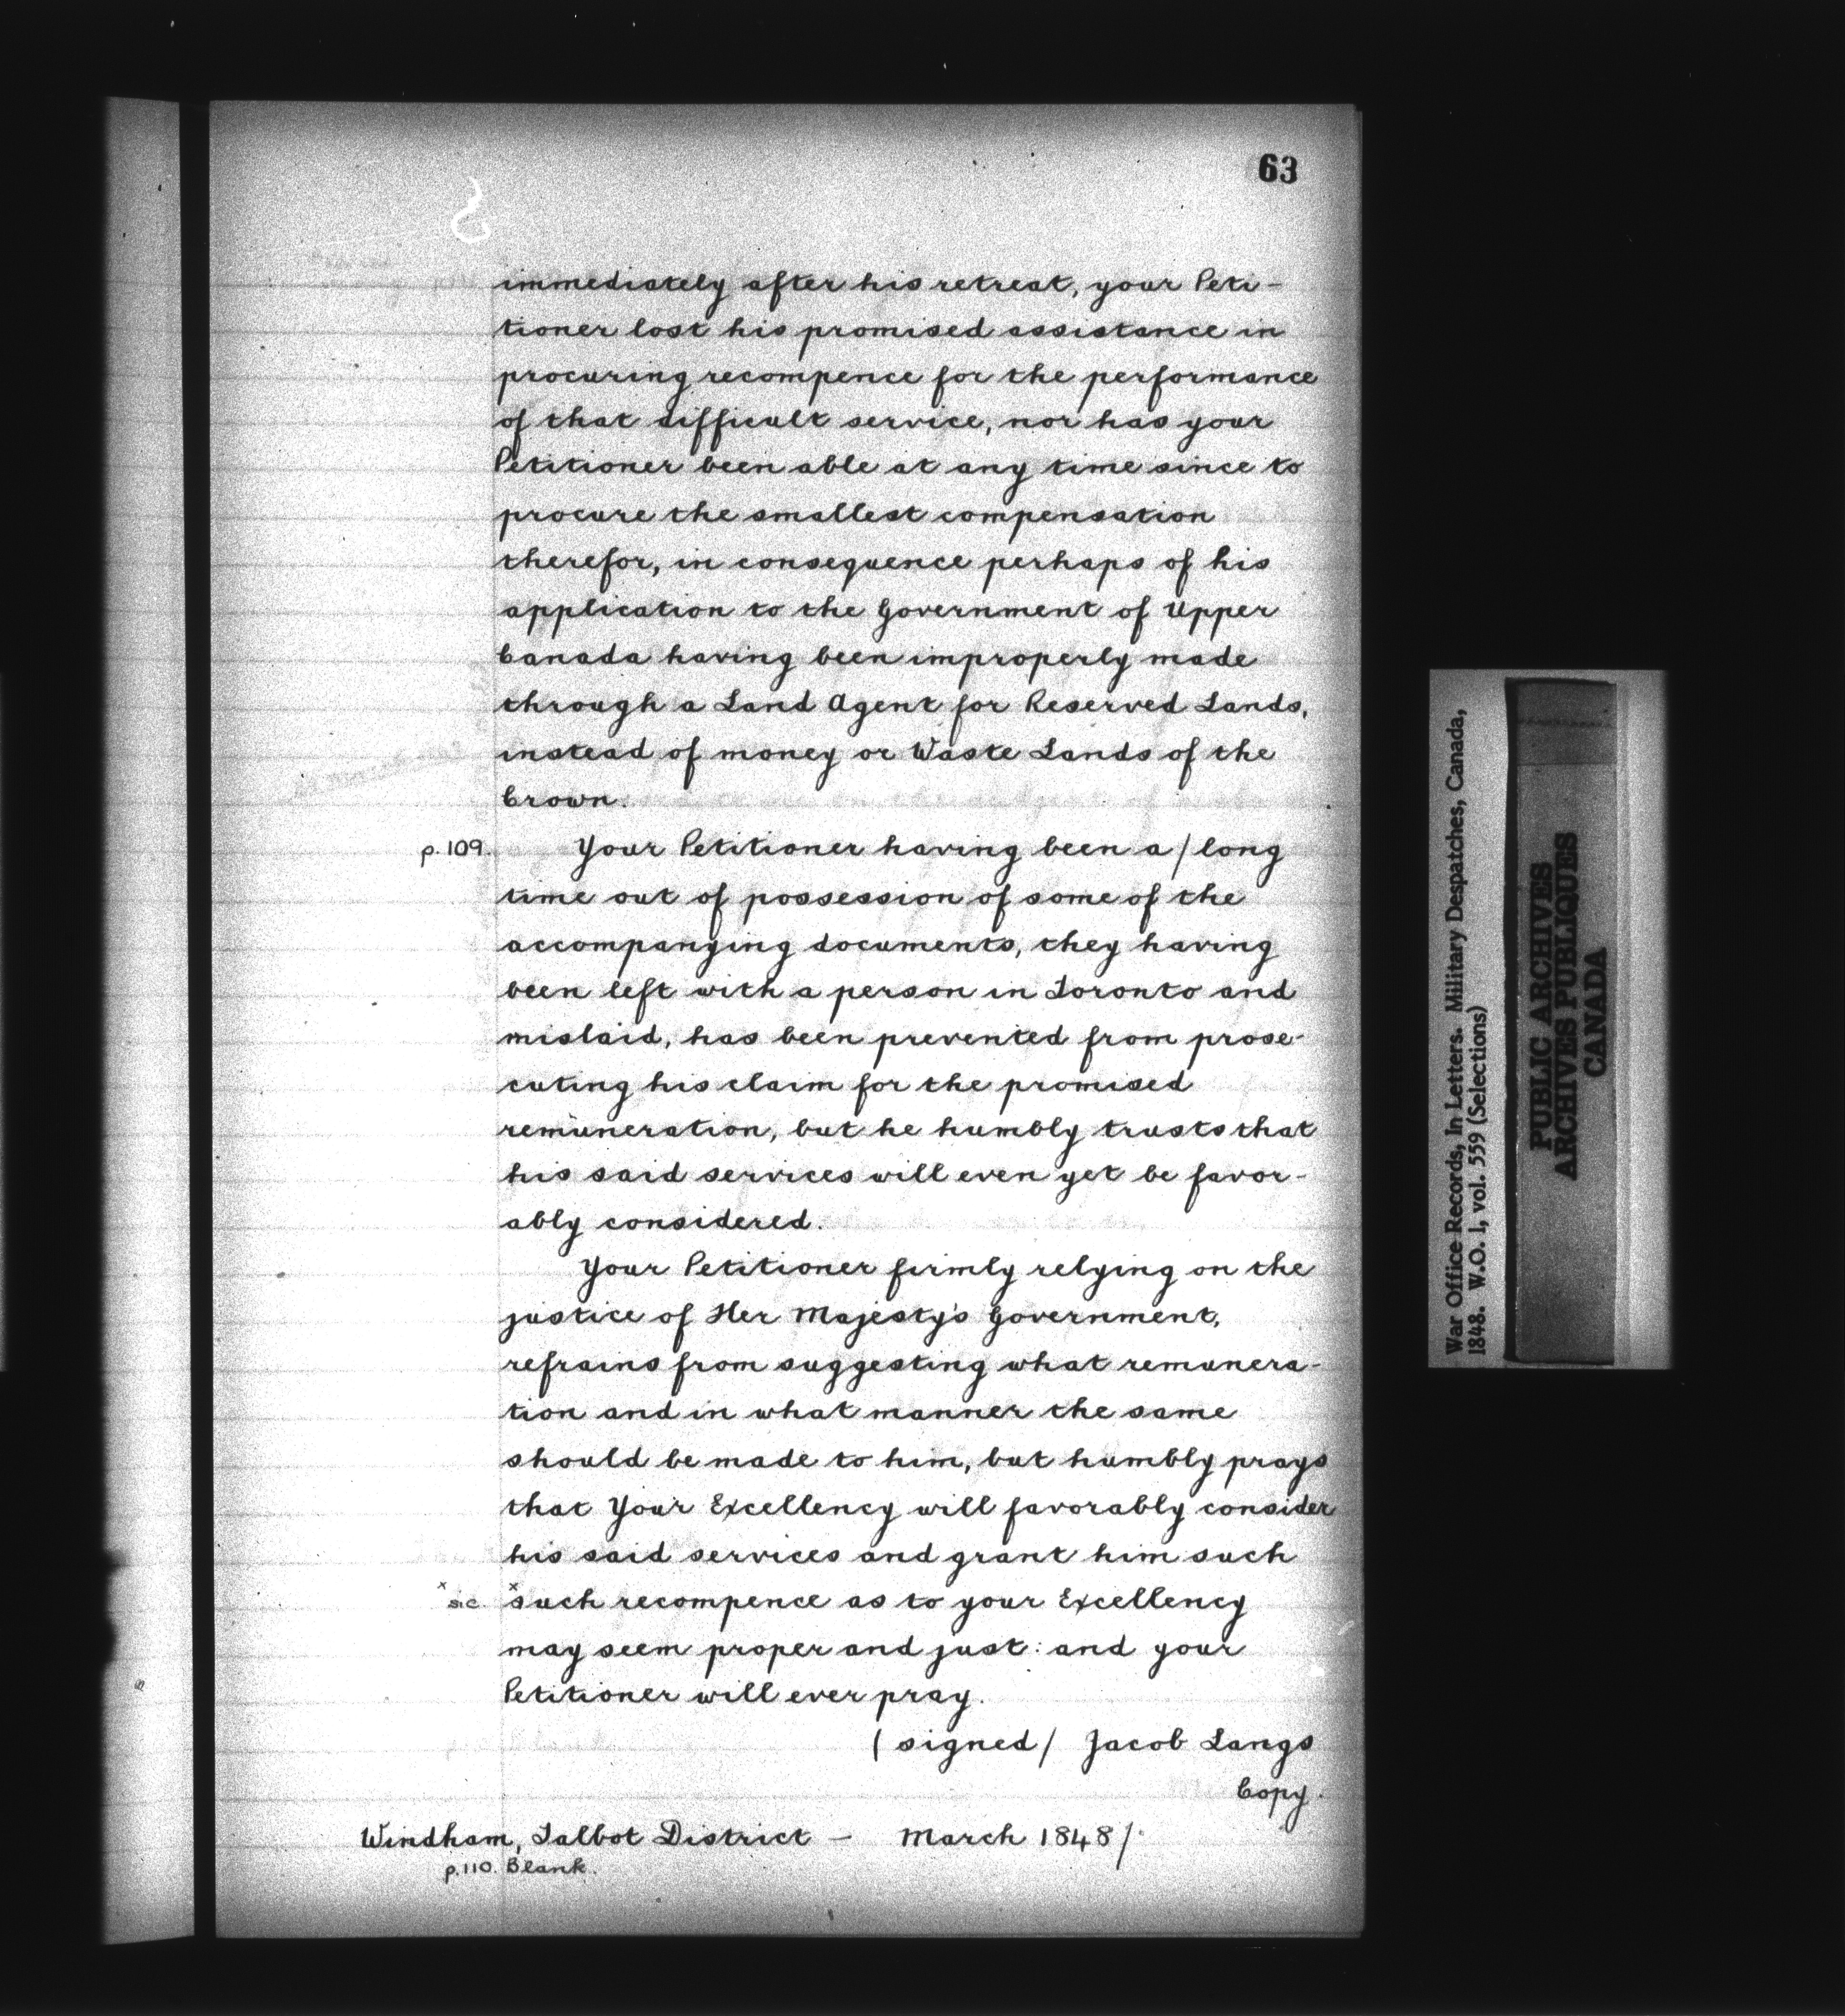 63
immediately after his retreat, your Peti-
tioner lost his promised assistance in
procuring recompence for the performance
of that difficult service, nor has your
Petitioner been able at any time since to
procure the smallest compensation
therefor, in consequence perhaps of his
application to the Government of Upper
Canada having been improperly made
through a Land Agent for Reserved Lands,
instead of money or Waste Lands of the
Crown.
p. 109. Your Petitioner having been a / long
time out of possession of some of the
accompanying documents, they having
been left with a person in Toronto and
mislaid, has been prevented from prose-
cuting his claim for the promised
remuneration, but he humbly trusts that
his said services will even yet be favor-
ably considered.
Your Petitioner firmly relying on the
justice of Her Majesty's Government,
refrains from suggesting what remunera-
tion and in what manner the same
should be made to him, but humbly prays
that Your Excellency will favorably consider
his said services and grant him such
x sic. x such recompence as to your Excellency
may seem proper and just: and your
Petitioner will ever pray.
(signed/ Jacob Langs
Copy.
Windham, Talbot District — March 1848/.
p. 110. Blank.
War Office Records, In Letters. Military Despatches, Canada,
1848. W.O. 1, vol. 559 (Selections)
PUBLIC ARCHIVES
ARCHIVES PUBLIQUES
CANADA